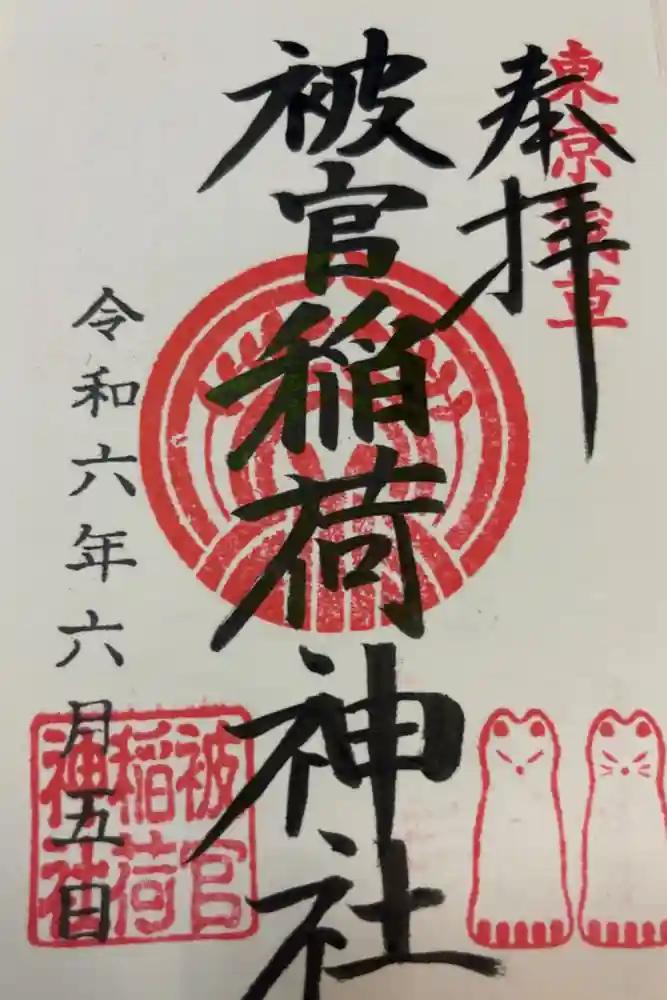 東京浅草
奉拝
被官稲荷神社
令和六年六月五日
被官
稲荷
神社